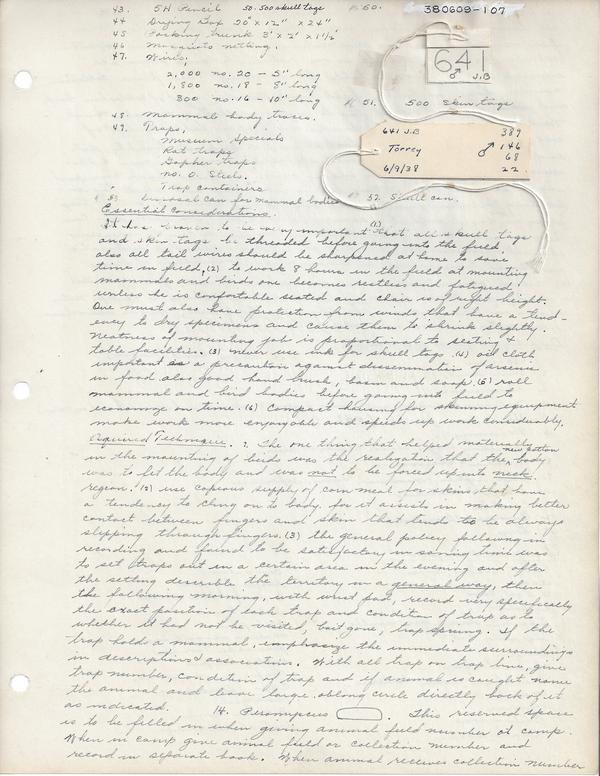 43. 5H Pencil 50. 500 skull tags 50.
380609-107
44 Drying Box 20" x 12" x 24"
45 Packing trunk 3' x 2' x 1½'
46 Mosquito netting.
47. Wires;
2,000 no. 20 - 5" long
1,800 no. 18 - 8" long
800 no. 16 - 10" long
51. 500 Skin tags
641
♂ J.B
641 J.B 389
Torrey ♂ 146
68
6/9/38 22
48. Mammal body trays.
49. Traps,
Museum Specials
Rat traps
Gopher traps
no. 0. Steels.
Trap containers
Disposal can for mammal bodies 52. Skull can.
Essential Considerations.
It has proven to be very important (1) that all skull tags
and skin tags be threaded before going into the field
also all tail wires should be sharpened at home to save
time in field, (2) to work 8 hours in the field at mounting
mammals and birds one becomes restless and fatigued
unless he is comfortable seated and chair is of right height.
One must also have protection from winds that have a tend-
ency to dry specimens and cause them to shrink slightly.
Neatness of mounting job is proportional to seating +
table facilities. (3) never use ink for skull tags (4) oil cloth
important as a precaution against dissemination of arsenic
in food also good hand brush, basin and soap. (5) roll
mammal and bird bodies before going into field to
economize on time. (6) Compact housing for skinning equipment
make work more enjoyable and speeds up work considerably.
Acquired Technique. 1. The one thing that helped materially
in the mounting of birds was the realization that the new cotton body
was to fit the body and was not to be forced up into neck
region. (2) use copious supply of corn meal for skins that have
a tendency to cling on to body, for it assists in making better
contact between fingers and skin that tends to be always
slipping through fingers. (3) the general policy following in
recording and found to be satisfactory in saving time was
to set traps out in a certain area in the evening and after
the setting describe the territory in a general way, then
the following morning, with wrist pad, record very specifically
the exact position of each trap and condition of trap as to
whether it had not be visited, bait gone, trap sprung. If the
trap holds a mammal, emphasize the immediate surroundings
in descriptions + association. With all trap on trap line, give
trap number, condition of trap and if animal is caught name
the animal and leave large oblong circle directly back of it
as indicated. 14. Peromyscus. This reserved space
is to be filled in when giving animal field number at camp.
When in camp give animal field or collection number and
record in separate book. When animal receives collection number